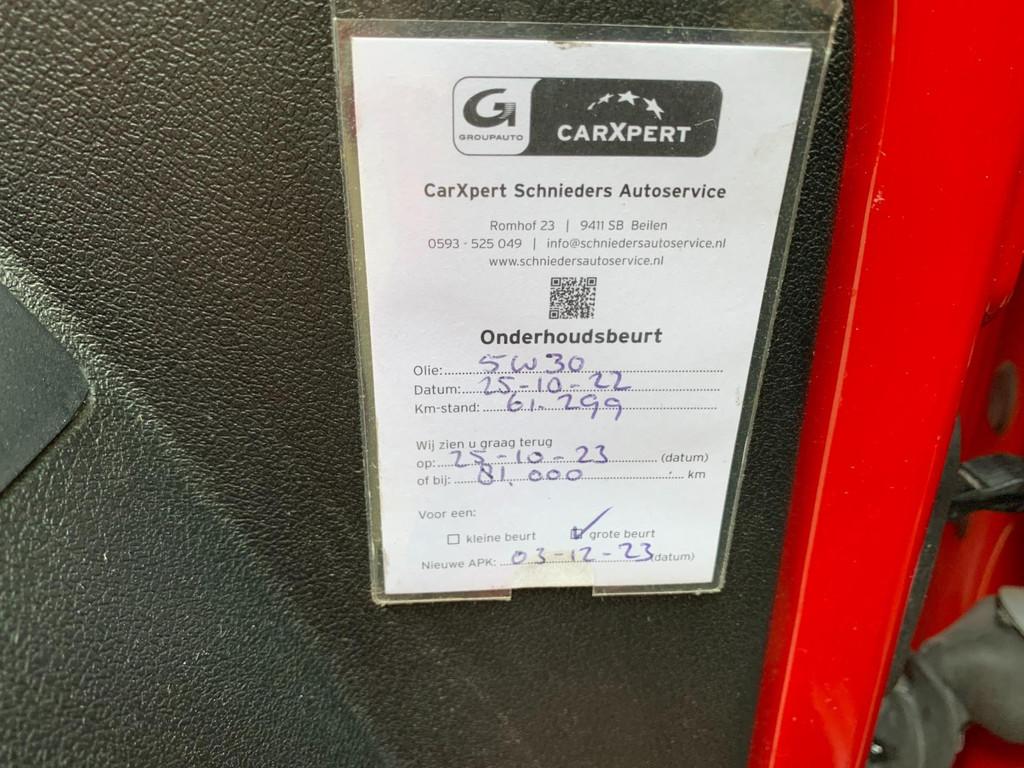 G
GROUPAUTO
CARXPERT
CarXpert Schnieders Autoservice
Romhof 23 | 9411 SB Beilen
0593 - 525 049 | info@schniedersautoservice.nl
www.schniedersautoservice.nl
Onderhoudsbeurt
Olie: 5W30
Datum: 25-10-22
Km-stand: 61.299
Wij zien u graag terug
op: 25-10-23 (datum)
of bij: 81.000 km
Voor een:
kleine beurt grote beurt
Nieuwe APK: 03-12-23 (datum)